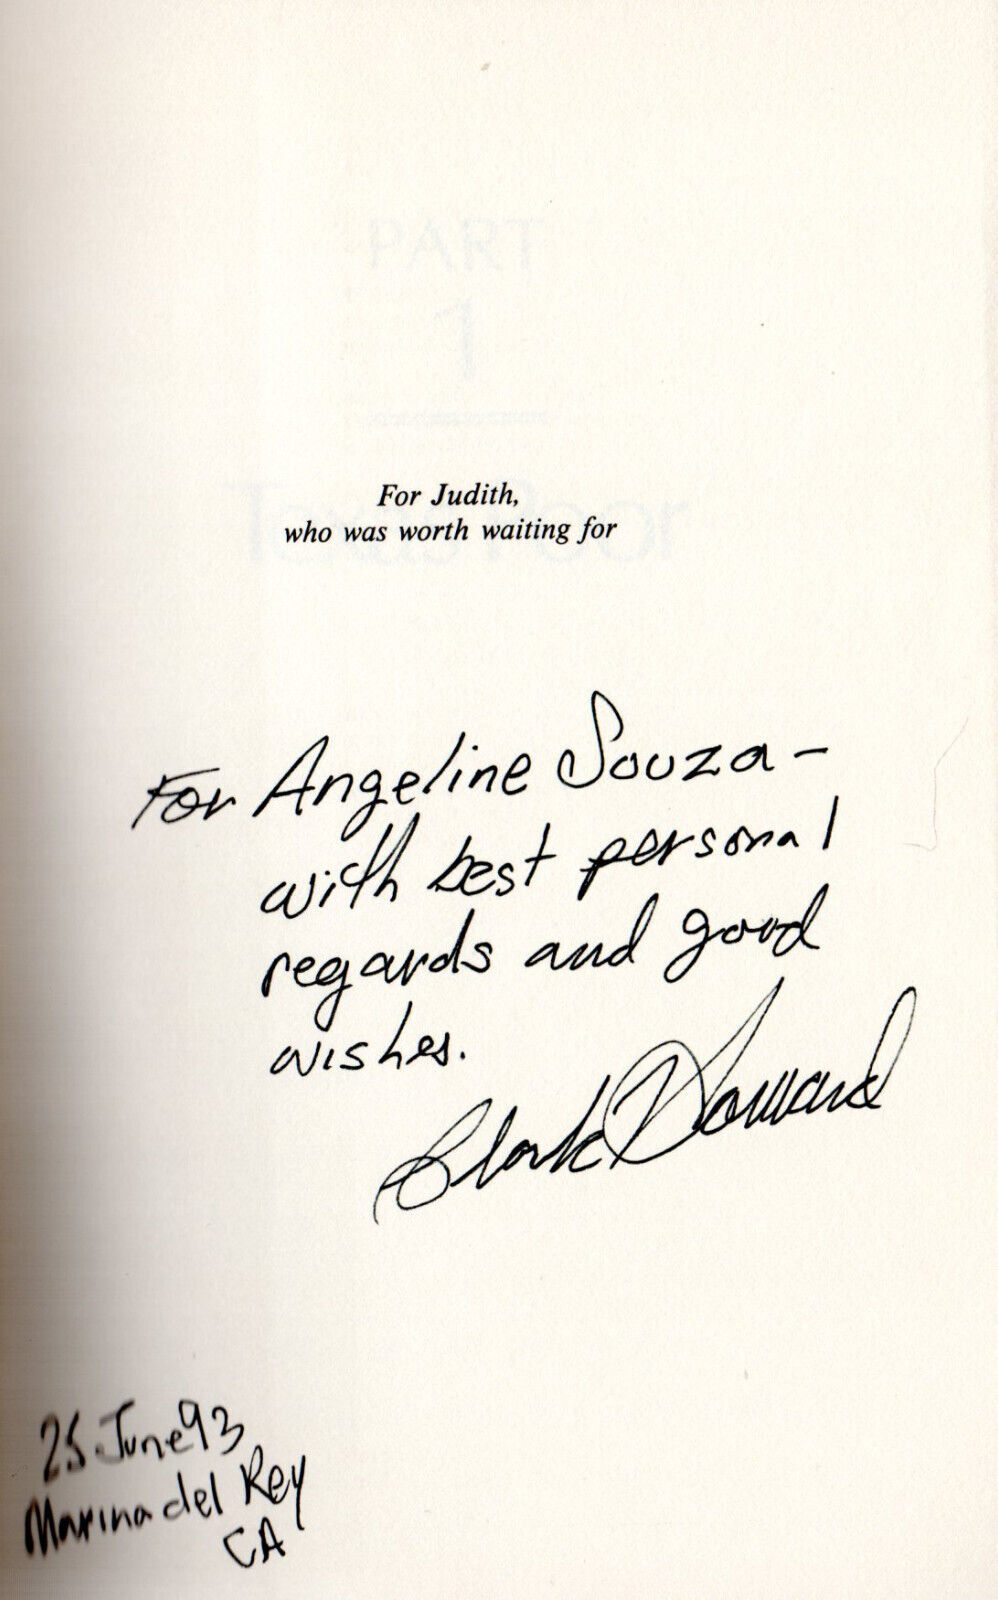 PART
1
Texas Poor
For Judith,
who was worth waiting for
For Angeline Souza –
with best personal
regards and good
wishes.
Clark Howard
25 June 93
Marina del Rey
CA